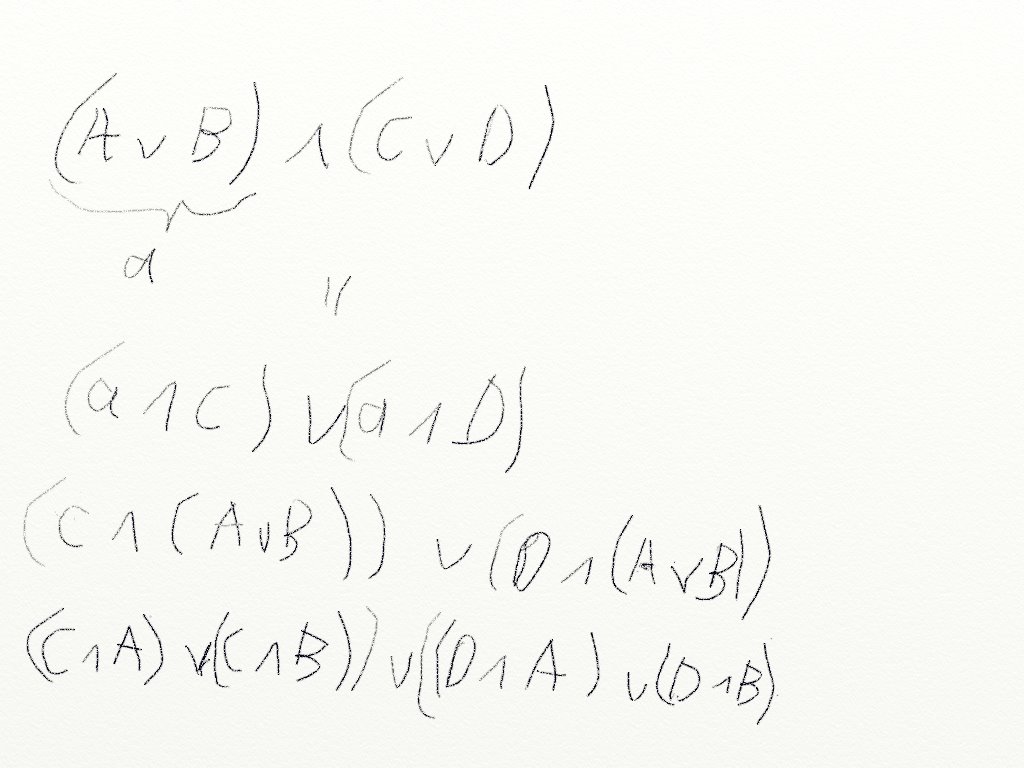 (A ∨ B) ∧ (C ∨ D)
a
=
(a ∧ C) ∨ (a ∧ D)
(C ∧ (A ∨ B)) ∨ (D ∧ (A ∨ B))
(C ∧ A) ∨ (C ∧ B)) ∨ ((D ∧ A) ∨ (D ∧ B)